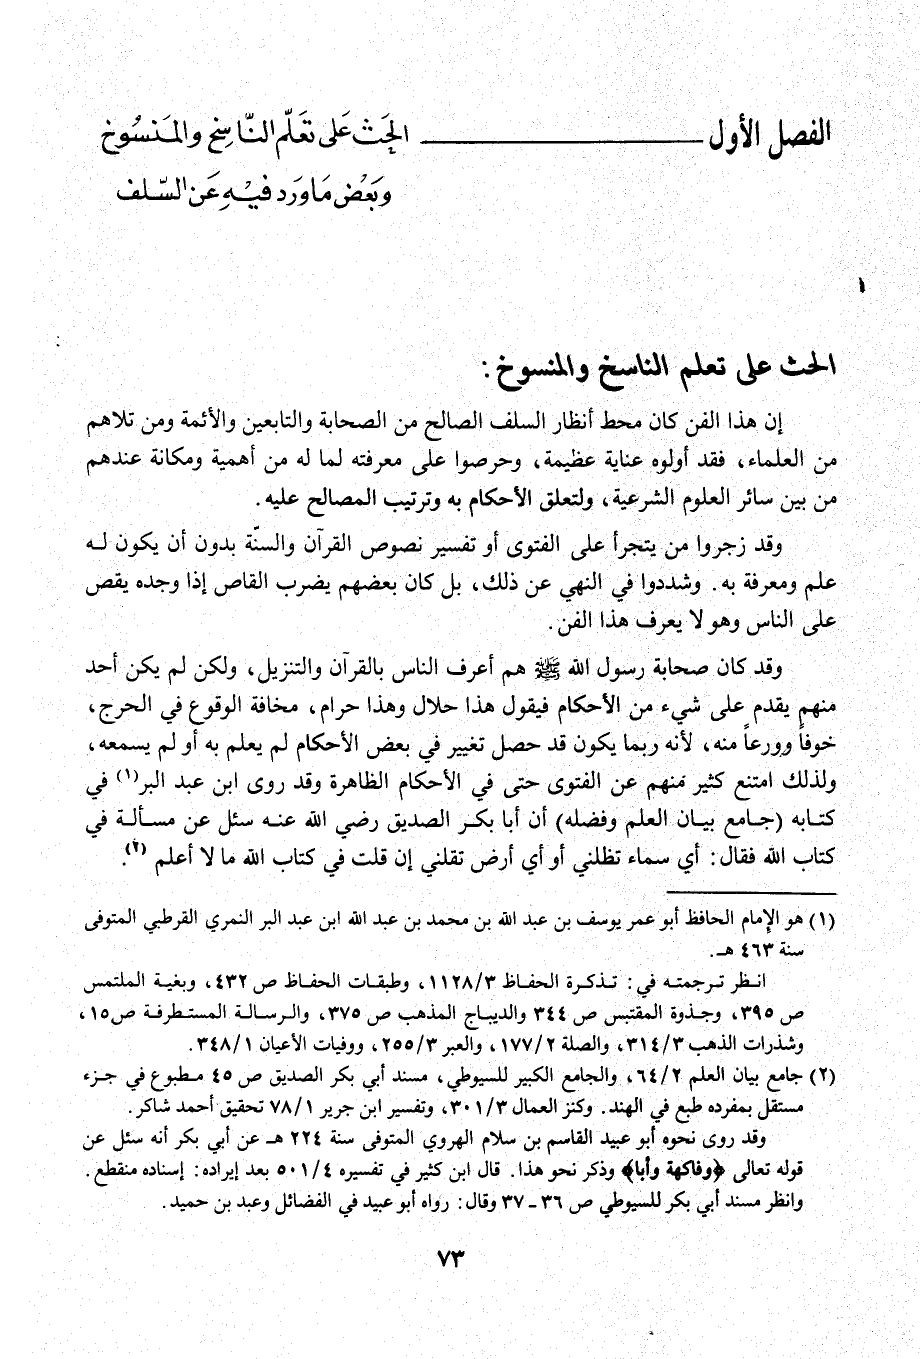 الفصل الأول ــــــــ الحَث عَلى تعَلّم النّاسِخ والمَنسُوخ
وبَعْض مَا وَرَد فيْهِ عَن السّلف
١
الحث على تعلم الناسخ والمنسوخ :
إن هذا الفن كان محط أنظار السلف الصالح من الصحابة والتابعين والأئمة ومن تلاهم
من العلماء، فقد أولوه عناية عظيمة، وحرصوا على معرفته لما له من أهمية ومكانة عندهم
من بين سائر العلوم الشرعية، ولتعلق الأحكام به وترتيب المصالح عليه.
وقد زجروا من يتجرأ على الفتوى أو تفسير نصوص القرآن والسنّة بدون أن يكون له
علم ومعرفة به. وشددوا في النهي عن ذلك، بل كان بعضهم يضرب القاص إذا وجده يقص
على الناس وهو لا يعرف هذا الفن.
وقد كان صحابة رسول الله ﷺ هم أعرف الناس بالقرآن والتنزيل، ولكن لم يكن أحد
منهم يقدم على شيء من الأحكام فيقول هذا حلال وهذا حرام، مخافة الوقوع في الحرج،
خوفاً وورعاً منه، لأنه ربما يكون قد حصل تغيير في بعض الأحكام لم يعلم به أو لم يسمعه،
ولذلك امتنع كثير منهم عن الفتوى حتى في الأحكام الظاهرة وقد روى ابن عبد البر(١) في
كتابه (جامع بيان العلم وفضله) أن أبا بكر الصديق رضي الله عنه سئل عن مسألة في
كتاب الله فقال: أي سماء تظلني أو أي أرض تقلني إن قلت في كتاب الله ما لا أعلم (٢).
(١) هو الإمام الحافظ أبو عمر يوسف بن عبد الله بن محمد بن عبد الله ابن عبد البر النمري القرطبي المتوفى
سنة ٤٦٣ هـ.
انظر ترجمته في: تذكرة الحفاظ ١١٢٨/٣، وطبقات الحفاظ ص ٤٣٢، وبغية الملتمس
ص ٣٩٥، وجذوة المقتبس ص ٣٤٤ والديباج المذهب ص ٣٧٥، والرسالة المستطرفة ص١٥،
وشذرات الذهب ٣١٤/٣، والصلة ١٧٧/٢، والعبر ٢٥٥/٣، ووفيات الأعيان ٣٤٨/١.
(٢) جامع بيان العلم ٦٤/٢، والجامع الكبير للسيوطي، مسند أبي بكر الصديق ص ٤٥ مطبوع في جزء
مستقل بمفرده طبع في الهند. وكنز العمال ٣٠١/٣، وتفسير ابن جرير ٧٨/١ تحقيق أحمد شاكر.
وقد روى نحوه أبو عبيد القاسم بن سلام الهروي المتوفى سنة ٢٢٤ هـ عن أبي بكر أنه سئل عن
قوله تعالى ﴿وفاكهة وأبا﴾ وذكر نحو هذا. قال ابن كثير في تفسيره ٥٠١/٤ بعد إيراده: إسناده منقطع.
وانظر مسند أبي بكر للسيوطي ص ٣٦ - ٣٧ وقال: رواه أبو عبيد في الفضائل وعبد بن حميد.
٧٣